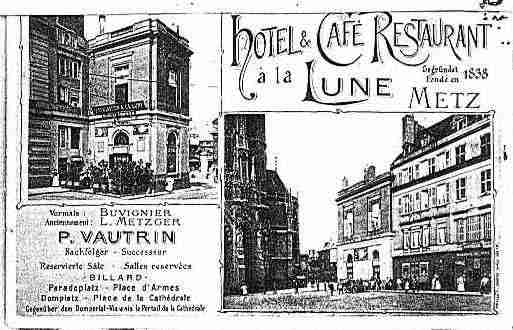 HOTEL & CAFÉ RESTAURANT
à la LUNE
Gegründet
Fondé en 1838
METZ
Vormals : BUVIGNIER
Anciennement : L. METZGER
P. VAUTRIN
Nachfolger - Successeur
Reservierte Säle - Salles réservées
- BILLARD -
Paradeplatz - Place d'Armes
Domplatz - Place de la Cathédrale
Gegenüber dem Domportal - Vis-à-vis le Portail de la Cathédrale